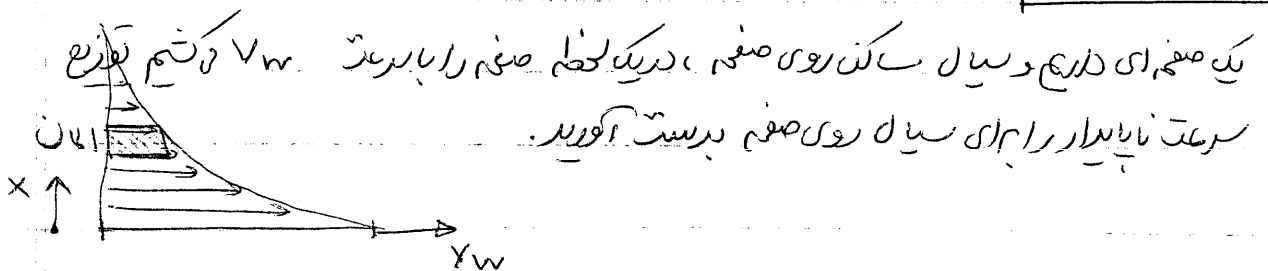 یک صفحه ای داریم و سیال ساکن روی صفحه ، در یک لحظه صفحه را با سرعت Vw می کشیم توزیع
سرعت ناپایدار را برای سیال روی صفحه بدست آورید.
المان
X
Vw